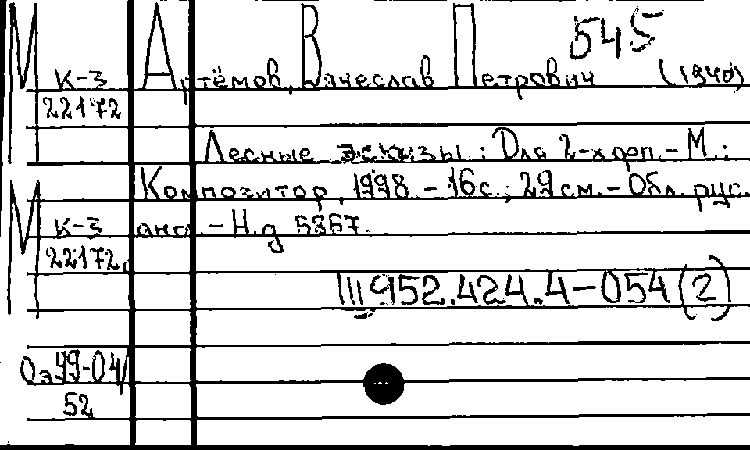 545
М К-3 Артёмов, Вячеслав Петрович (1940)
22172
Лесные эскизы: Для 2-х ф.п. - М.:
Композитор, 1998. - 16 с.; 29 см. - Обл. рус.
М К-3 англ. - Н.д 5867.
22172.
Ш952.424.4-054(2)
Оз49-04/
52